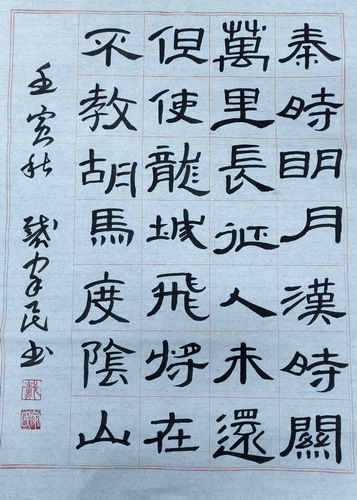 秦時明月漢時關
萬里長征人未還
但使龍城飛將在
不教胡馬度陰山
壬寅秋 戴民书